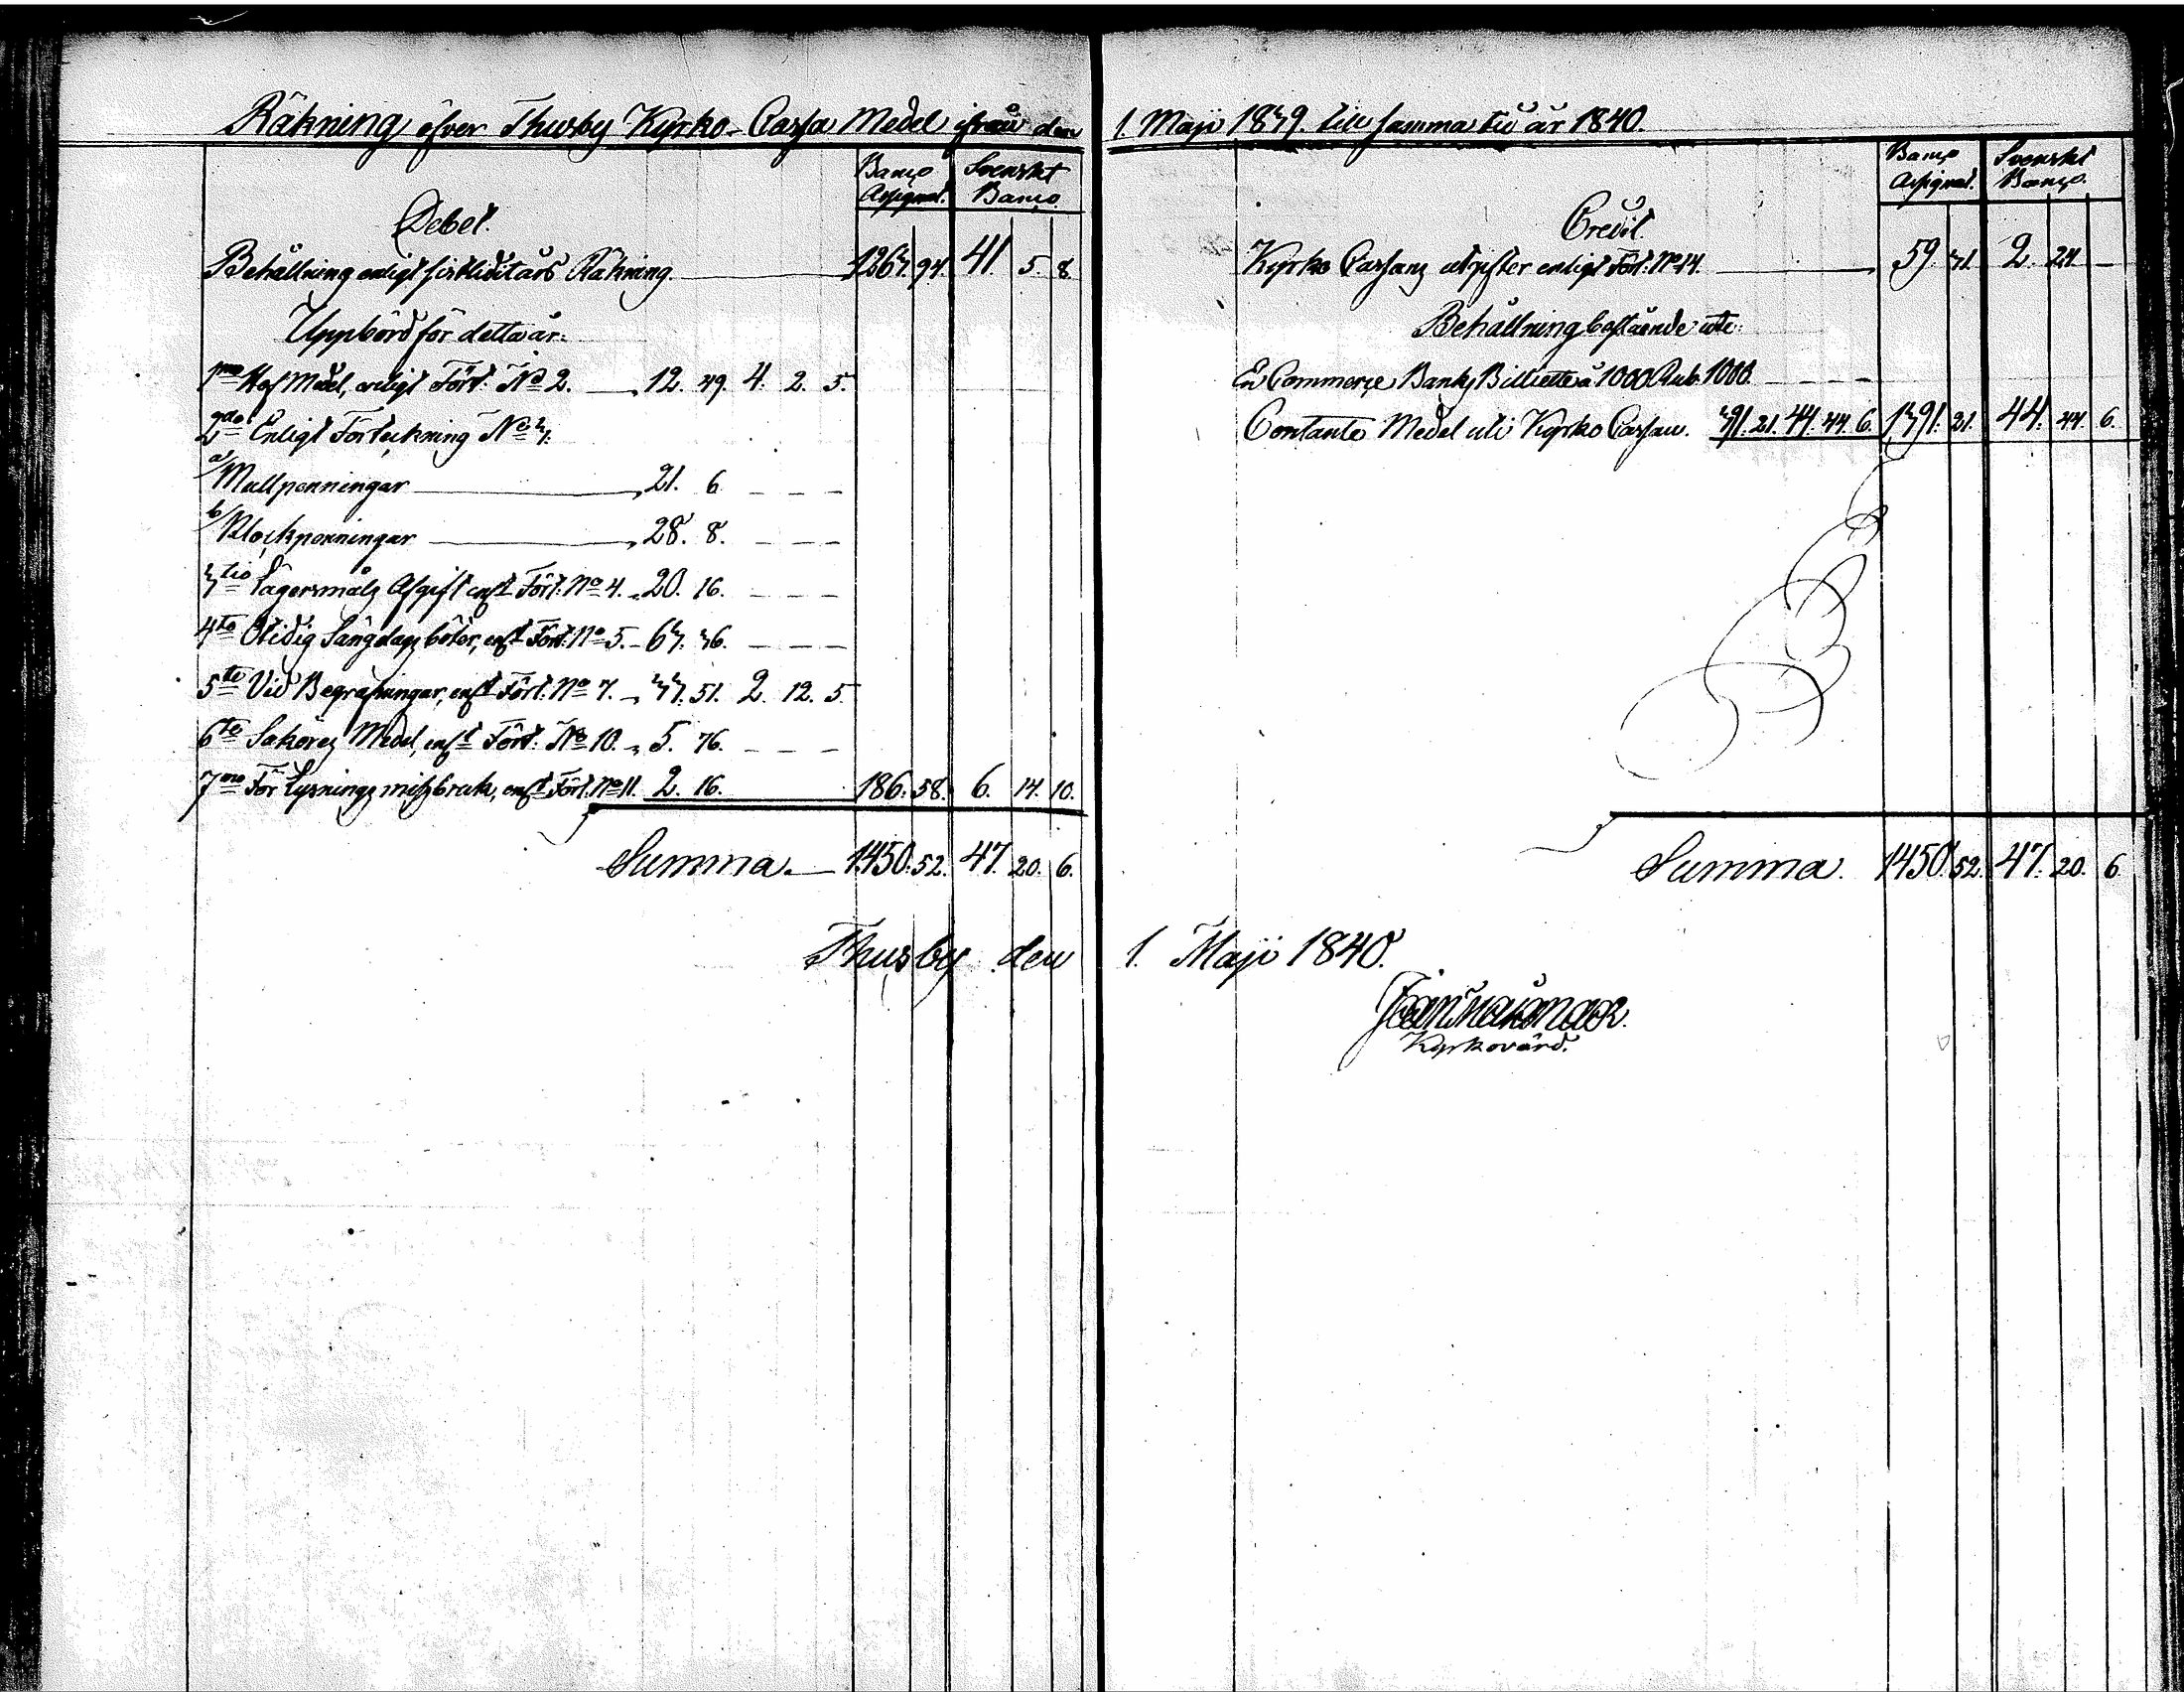 Räkning öfver Thusby Kyrko-Cassa Medel ifrån den 1. Maji 1839. till samma tid år 1840.
Banco Assignat. Svenskt Banco
Debet.
Behållning enligt sistlidit års Räkning. 1263. 94. 41. 5. 8.
Uppbörd för detta år:
1mo Håf Medel, enligt Fört. No 2. 12. 49. 4. 2. 5.
2do Enligt Forteckning No 3:
a/ Mullpenningar 21. 6. - - -
b/ Klockpenningar 28. 8. - - -
3tio Lägersmåls Afgift enl:t Fört: No 4. 20. 16. - - -
4to Otidig Sängelags böter, enl:t Fört: No 5. 63. 36. - - -
5te Vid Begrafningar, enl:t Fört: No 7. 33. 51. 2. 12. 5.
6te Saköres Medel, enl:t Fört: No 10. 5. 76. - - -
7mo För Lysnings missbruk, enl:t Fört. No 11. 2. 16. 186. 58. 6. 14. 10.
Summa. 1450. 52. 47. 20. 6.
Banco Assignat. Svenskt Banco.
Credit
Kyrko Cassans utgifter enligt Fört: No 14. 59. 31. 2. 24. -
Behållning bestående uti:
En Commerce Banks Billiette à 1000 Rub. 1000. - - - -
Contante Medel uti Kyrko Cassan. 391. 21. 44. 44. 6. 1391. 21. 44. 44. 6.
Summa. 1450. 52. 47. 20. 6
Thusby den 1. Maji 1840.
Kyrkovärd.